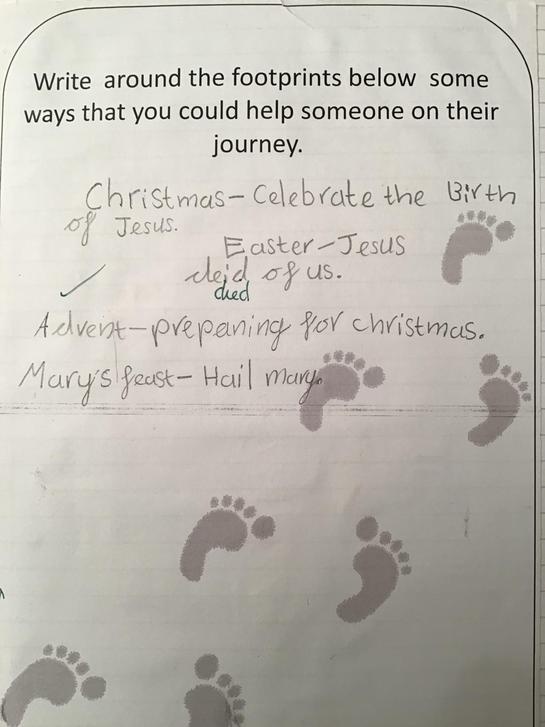 Write around the footprints below some
ways that you could help someone on their
journey.
Christmas - Celebrate the Birth
of Jesus.
Easter - Jesus
deid of us.
died
Advent - prepaning for christmas.
Mary's feast - Hail mary.